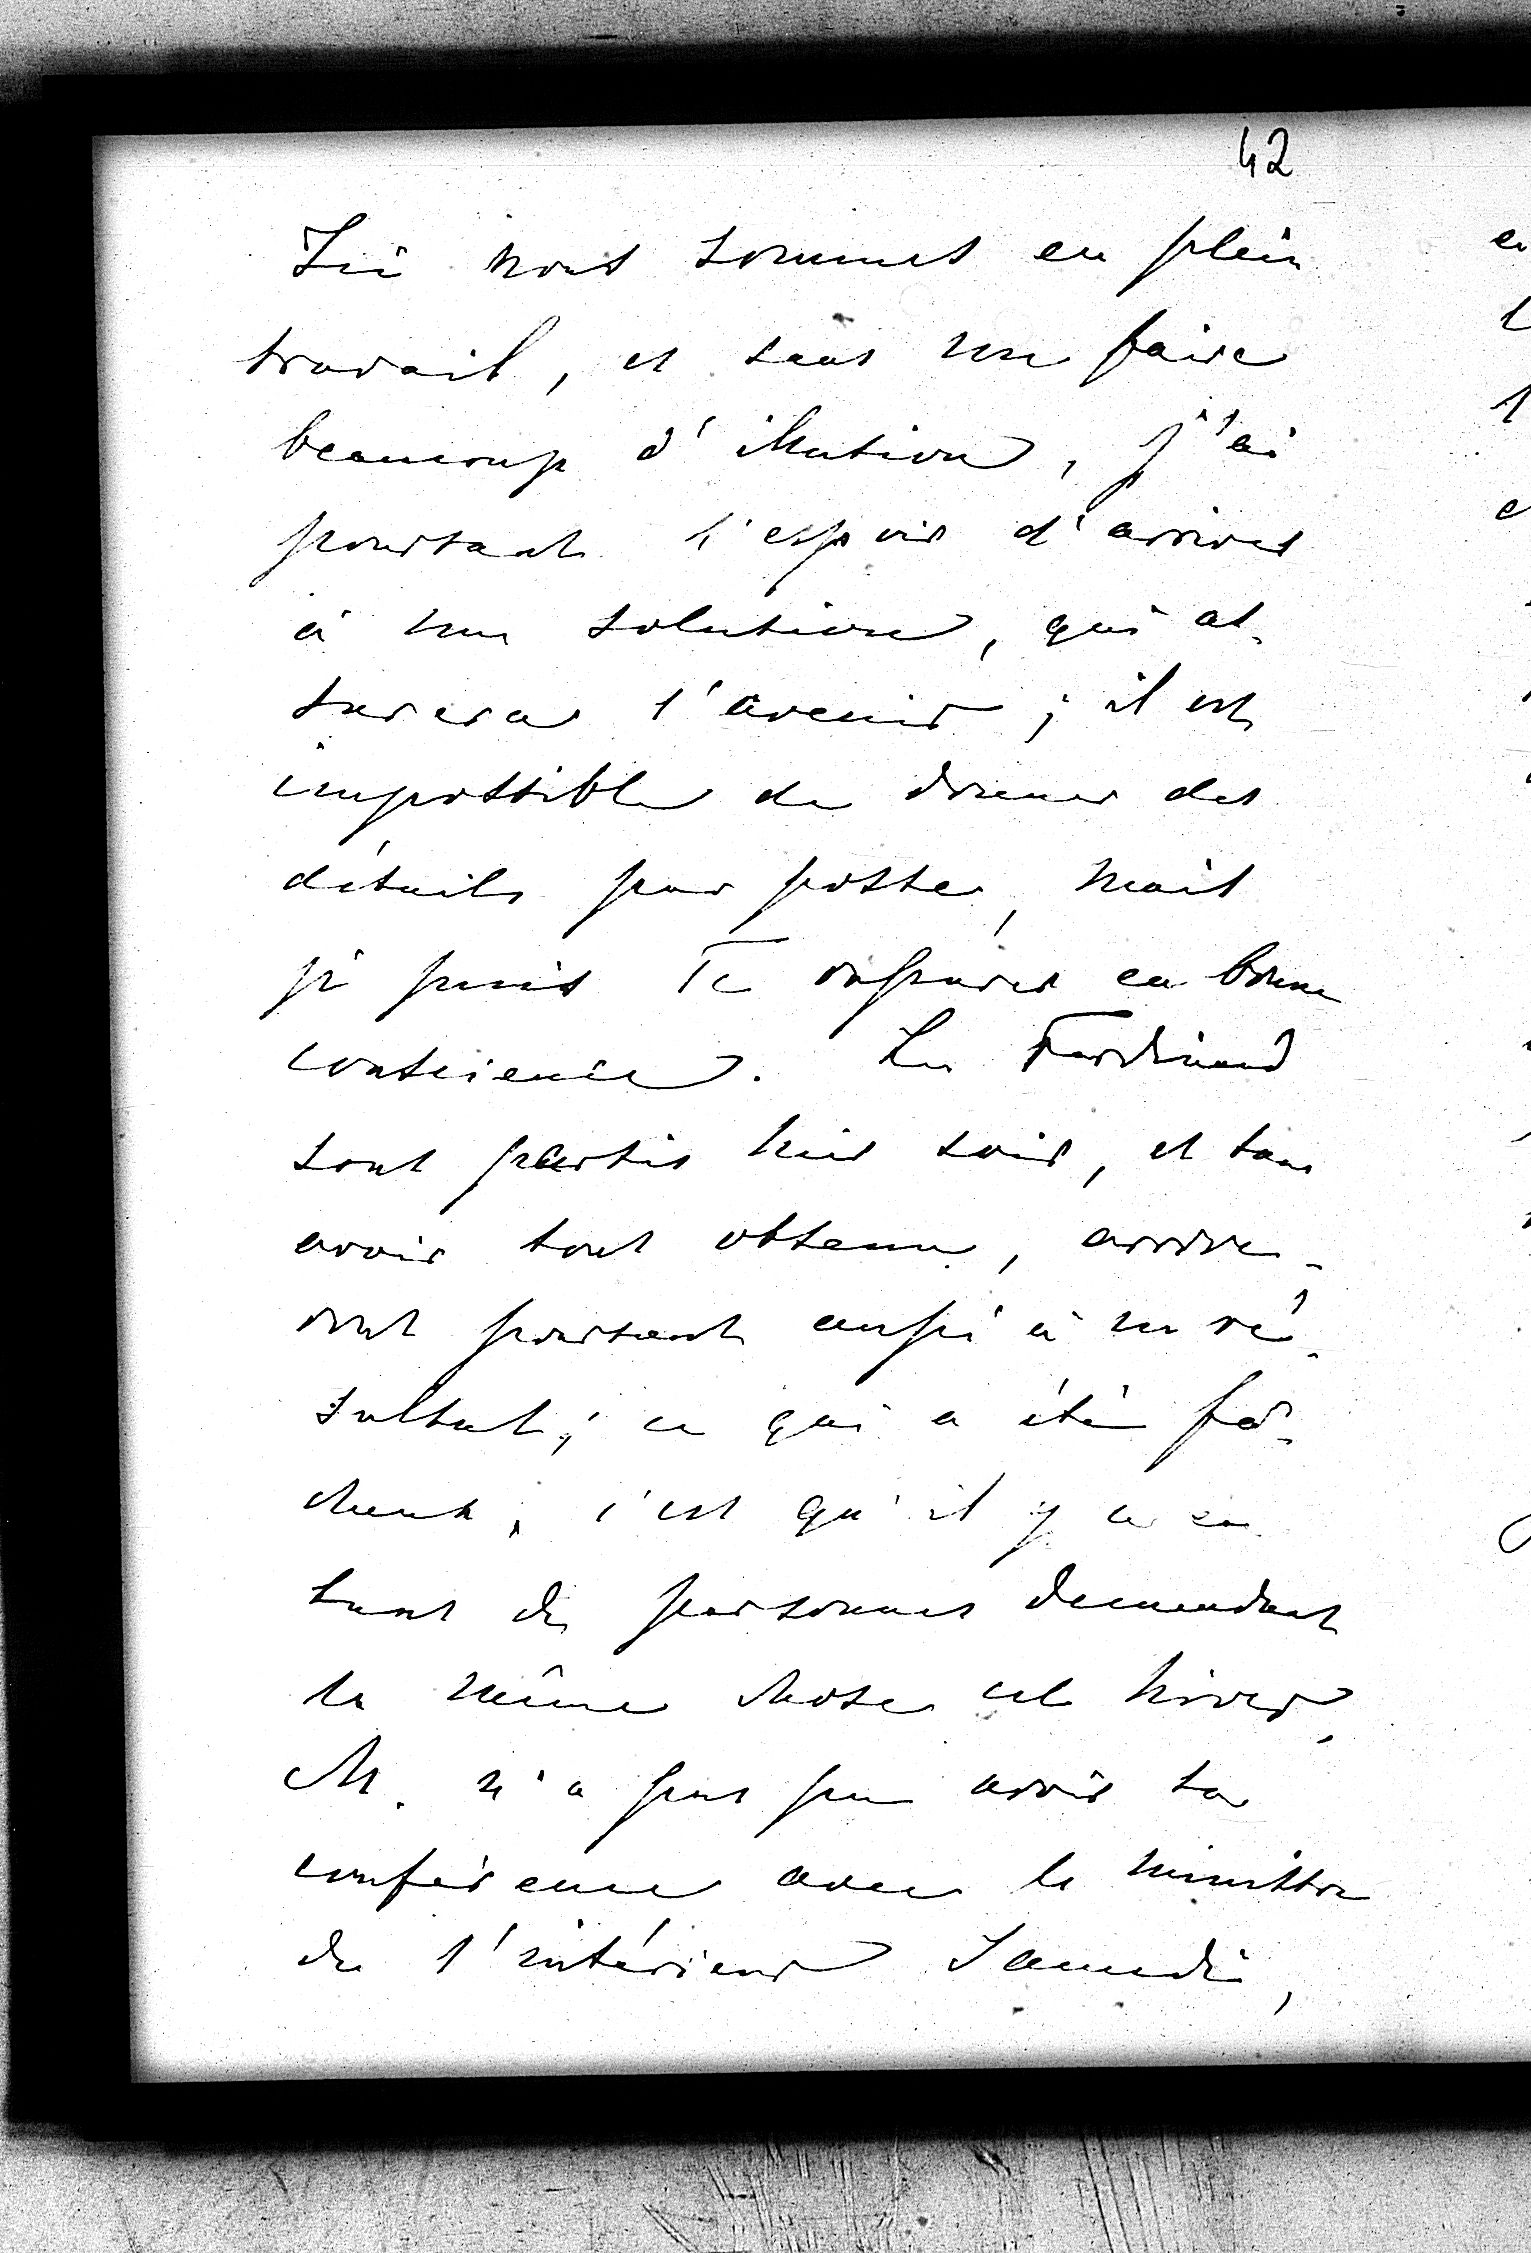 42
Ici nous sommes en plein
travail, et sans me faire
beaucoup d'illusion, j'ai
pourtant l'espoir d'arriver
à une solution, qui as-
surera l'avenir ; il est
impossible de donner des
détails par poste, mais
je puis Te rassurer en bonne
conscience. Les Ferdinand
sont partis hier soir, et sans
avoir tout obtenu, arrive-
ront pourtant aussi à un ré-
sultat ; ce qui a été fâ-
cheux, c'est qu'il y a eu
tant de personnes demandant
la même chose cet hiver.
M. n'a pas pu avoir sa
conférence avec le ministre
de l'intérieur Samedi,